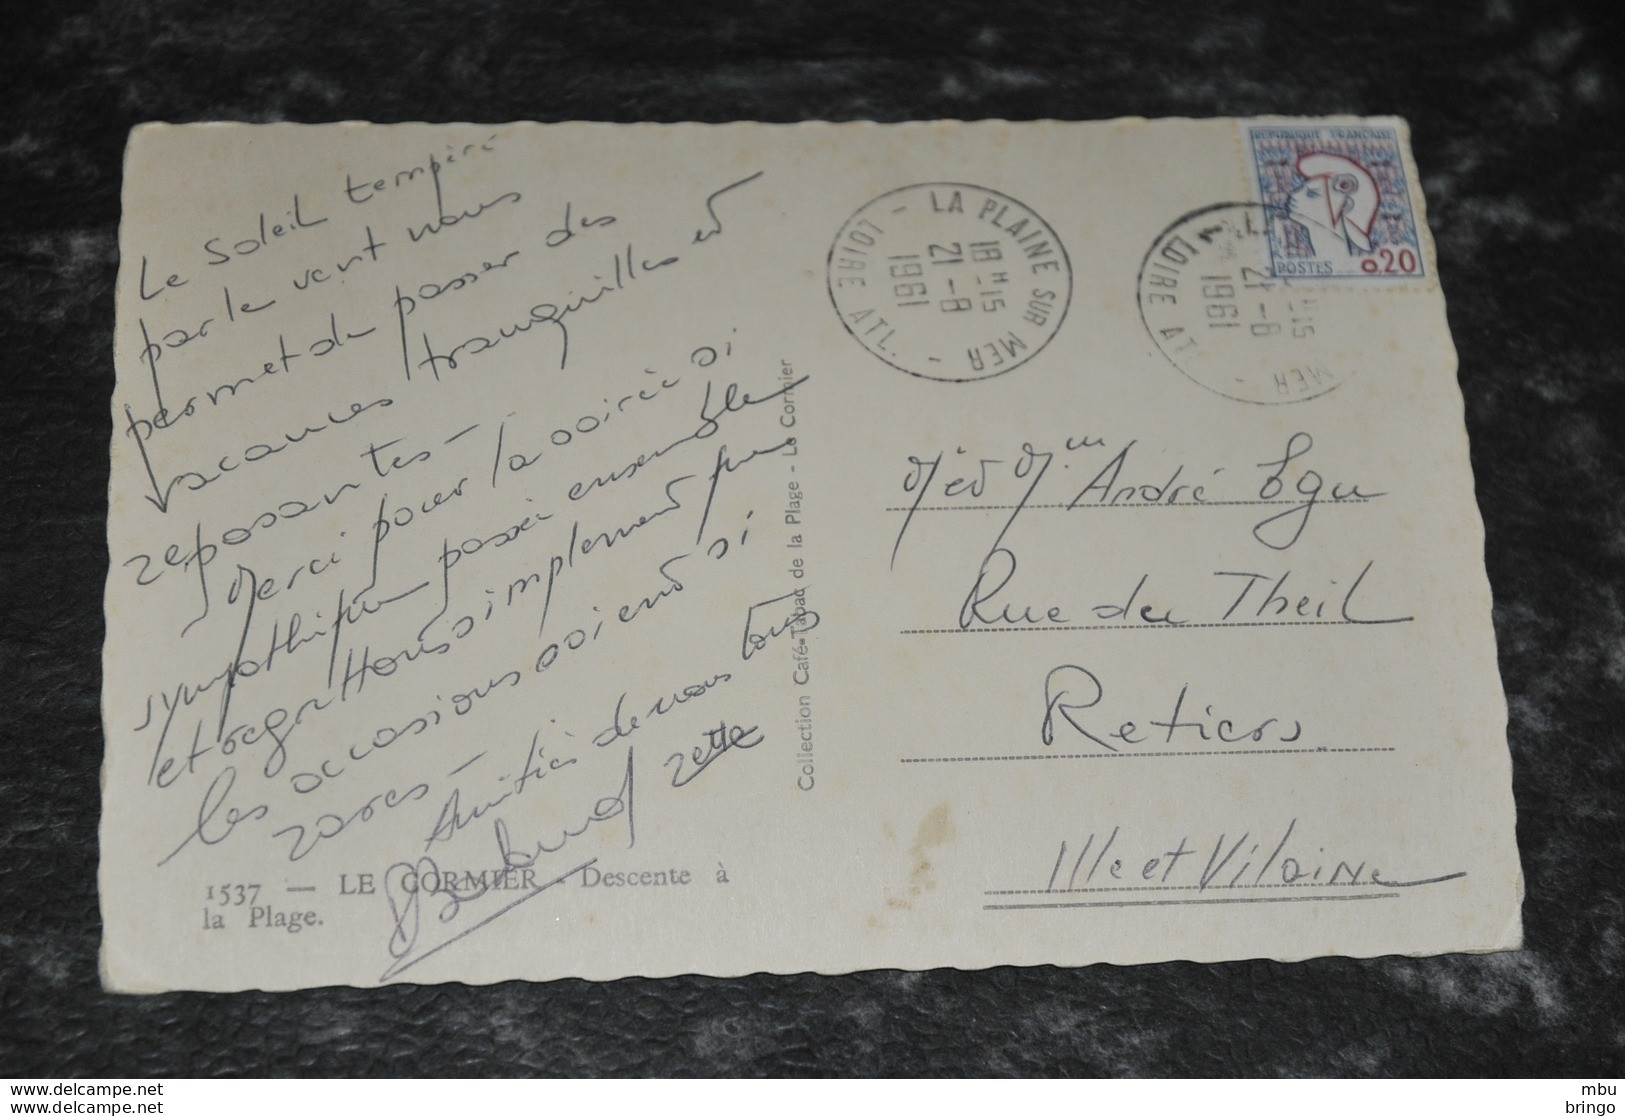 Le Soleil tempéré
par le vent nous
permet de passer des
vacances tranquilles et
reposantes -
Merci pour la soirée si
sympathique passée ensemble
et regrettons simplement que
les occasions soient si
rares -
Amitiés de nous tous
1537 — LE CORMIER - Descente à
la Plage.
Collection Café-Tabac de la Plage - Le Cormier
LA PLAINE SUR MER - LOIRE ATL. -
18 H 15
21 - 8
1961
LOIRE ATL
MER -
21 - 8
1961
REPUBLIQUE FRANÇAISE
POSTES 0,20
M et Mme André
Rue du Theil
Retiers
Ille et Vilaine
www.delcampe.net
www.delcampe.net
mbu
bringo